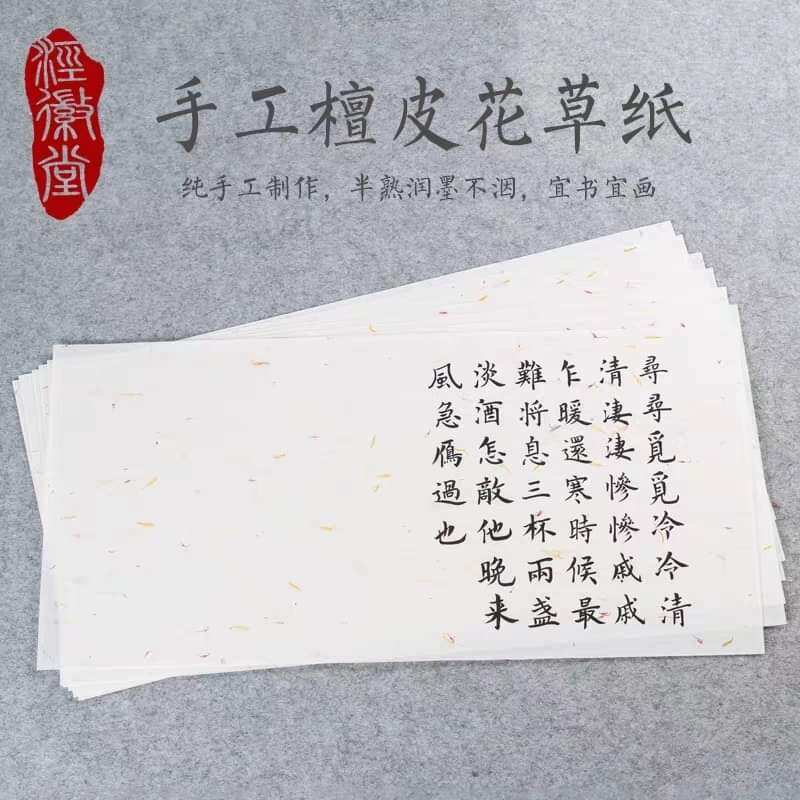 涇徽堂
手工檀皮花草纸
纯手工制作，半熟润墨不洇，宜书宜画
尋尋覓覓冷冷清
清淒淒慘慘戚戚
乍暖還寒時候最
難将息三杯兩盞
淡酒怎敵他晚来
風急鴈過也